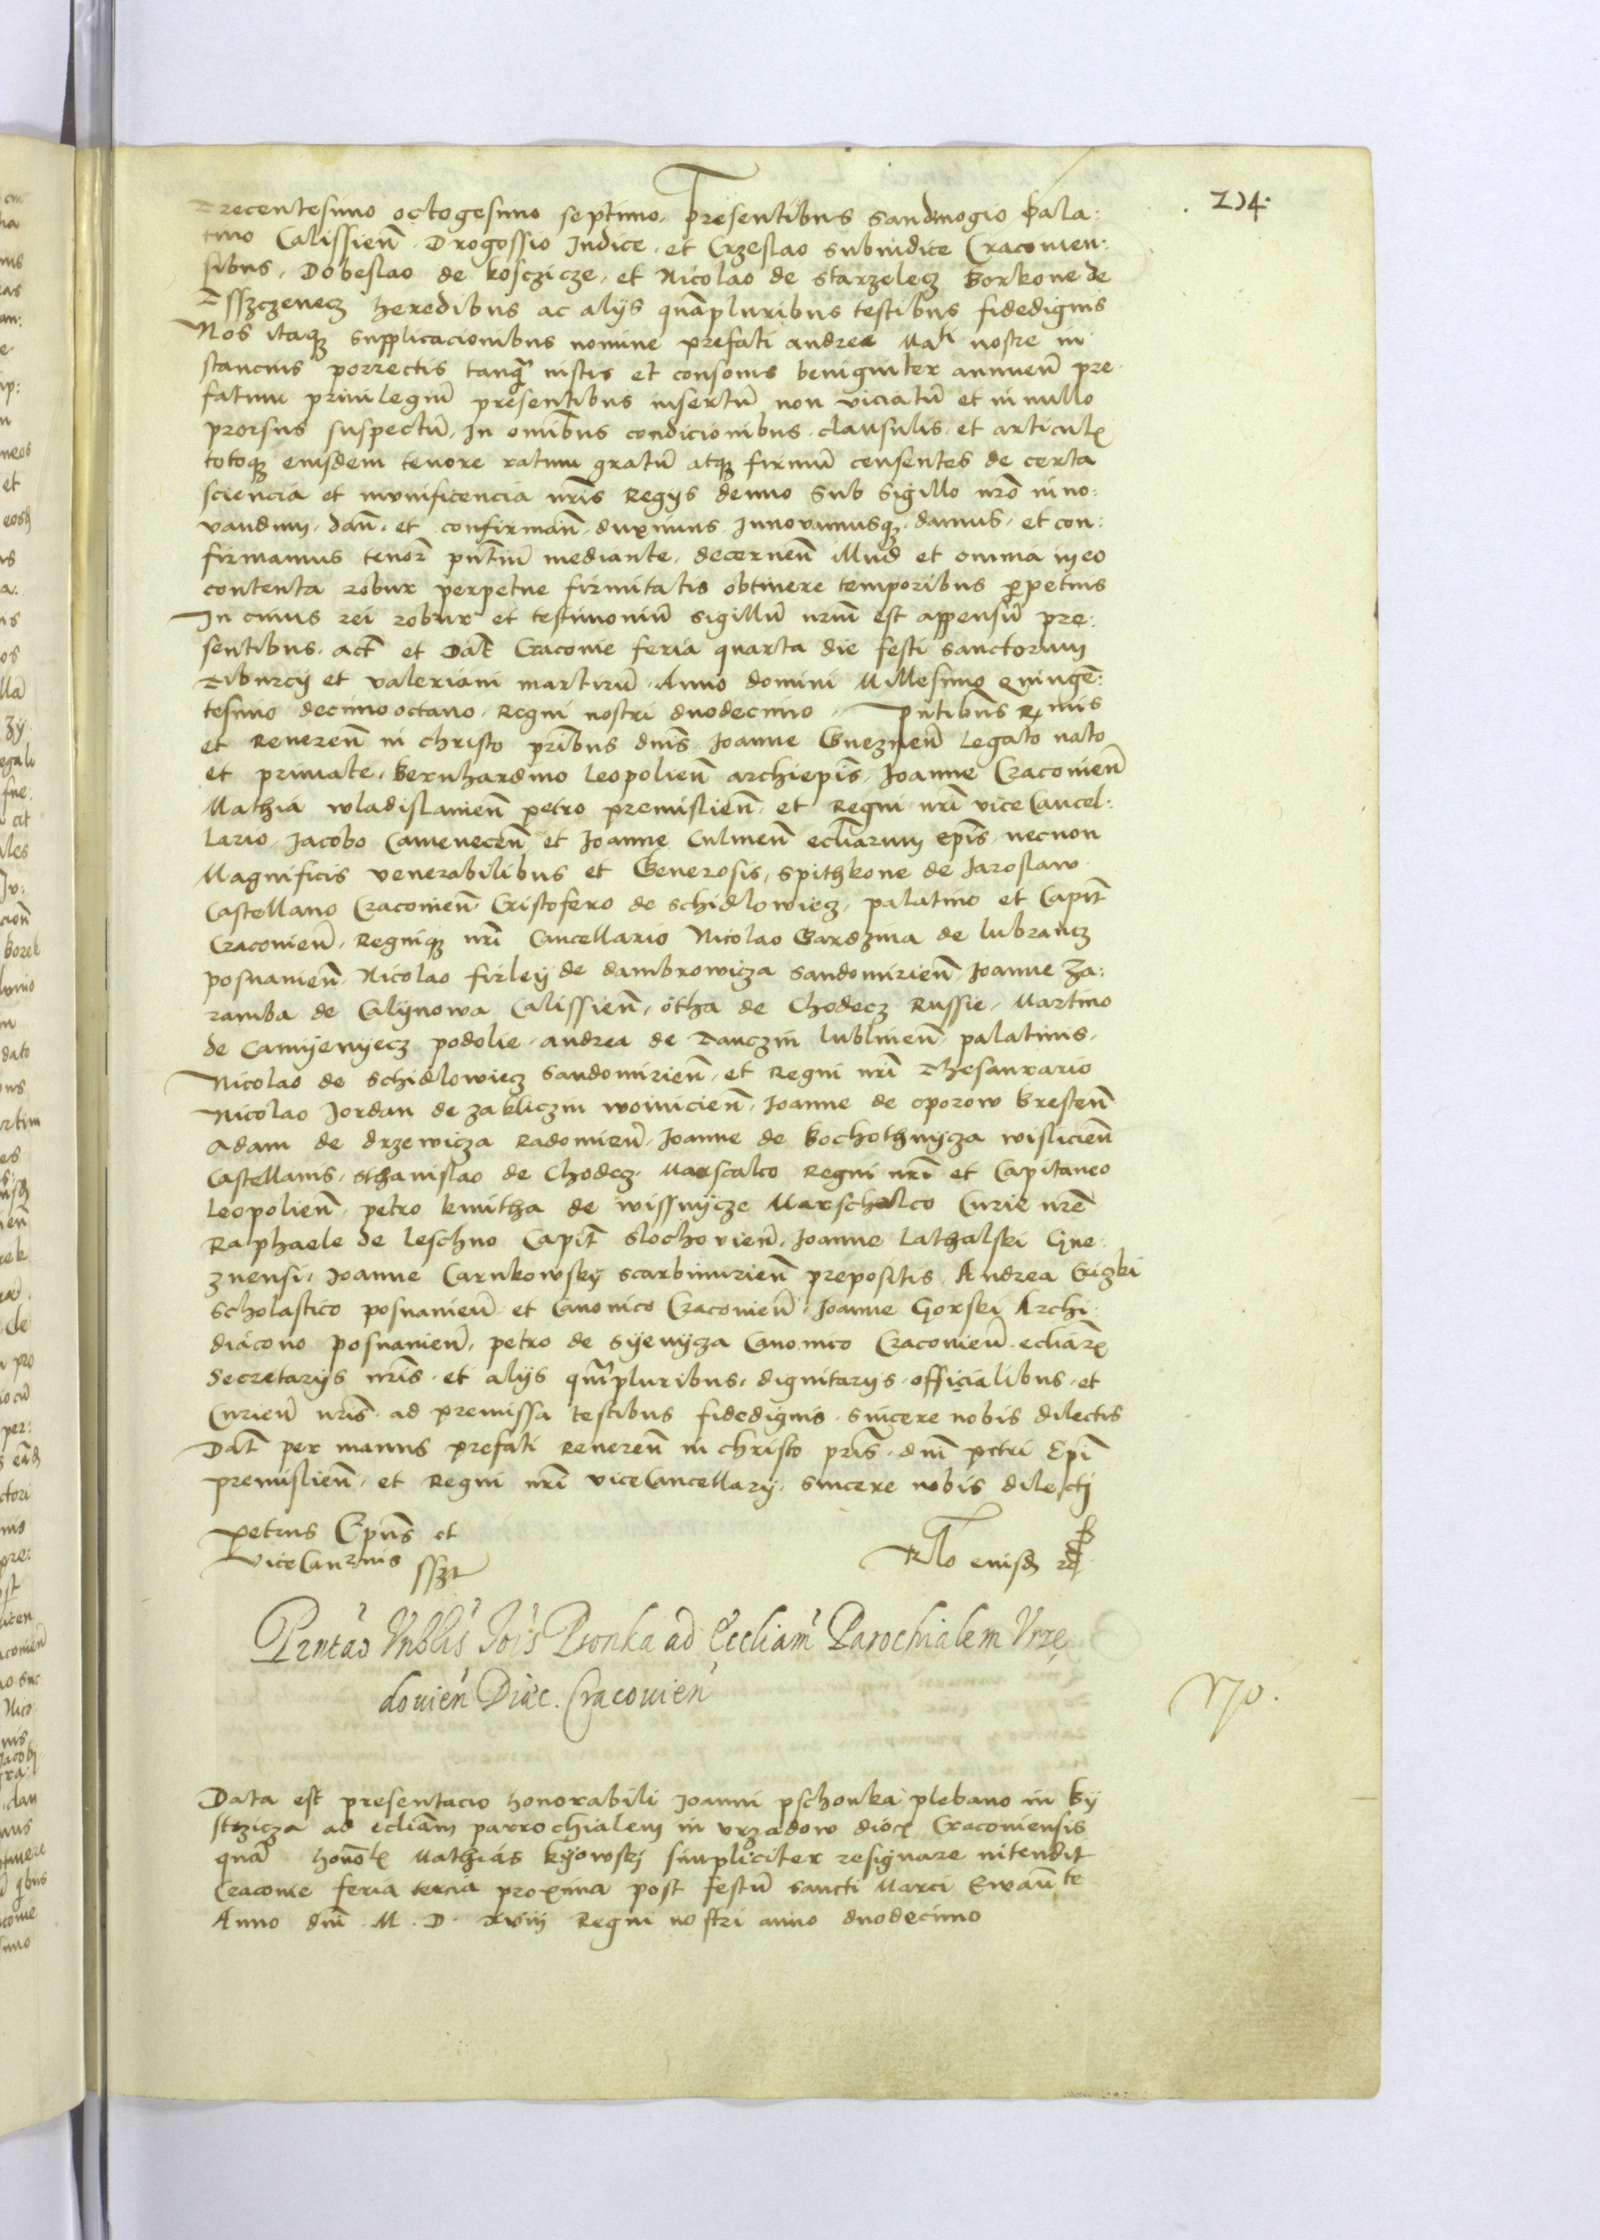 214.
Trecentesimo octogesimo septimo. Presentibus Sandiuogio Pala:
tino Calissien̄. Drogossio Iudice. et Crzeslao subiudice Cracouien:
sibus, Dobeslao de kosczicze, et Nicolao de Starzelecz Borkone de
heredibus ac alijs quāpluribus testibus fidedignis
Nos itaqȝ supplicacionibus nomine prefati andree Mati nostre in
stancius porrectis tanqȝ iustis et consonis benigniter annuen̄ pre
fatum priuilegiū presentibus insertū non viciatū et in nullo
prorsus suspectū, In omībus condicionibus. clausulis. et articul
totoqȝ eiusdem tenore ratum gratū atqȝ firmū censentes de certa
sciencia et munificencia nrīs Regijs denuo sub sigillo nrō inno:
vandum. dan̄. et confirman̄. duximus Innouamusqȝ. damus. et con:
firmamus tenor̄ pn̄tiū mediante. decernen̄ illud et omnia in eo
contenta robur perpetue firmitatis obtinere temporibus ꝑpetuis
In cuius rei robur et testimoniū sigillū nrūm est appensū pre:
sentibus. act̄ et dat̄ Cracouie feria quarta die festi sanctorum
Tiburcij et valeriani martirū. Anno domini Millesimo quingē:
tesimo decimooctauo. Regni nostri duodecimo pn̄tibus Rmis
et Reueren̄ in christo prībus dn̄is Ioanne Gneznen̄ legato nato
et primate, Bernhardino leopolien̄ archiepīs, Ioanne Cracouien̄
Mathia wladislauien̄ petro premislien̄ et Regni nrī viceCancel:
lario. Jacobo Camenecen̄ et Ioanne Culmen̄ ecliarum epīs. necnon
Magnificis venerabilibus et Generosis, Spithkone de Iaroslaw
Castellano Cracouien̄ Cristofero de Schidlowiecz, palatino et Capit̄
Cracouien̄, Regniqȝ nrī Cancellario Nicolao Gardzina de lubrancz
posnanien̄ Nicolao firley de dambrowicza Sandomirien̄ Ioanne Za:
ramba de Calijnowa Calissien̄, otha de Chodecz Russie. Martino
de Camijenijecz podolie. andrea de Tanczin lublinen̄ palatinis.
Nicolao de Schidlowiecz Sandomirien̄. et Regni nrī Thesaurario
Nicolao Jordan de zakliczin woinicien̄. Ioanne de oporow Bresten̄
Adam de drzewicza Radomien̄. Ioanne de Bochothnijcza wislicien̄
Castellanis. Sthanislao de Chodecz. Marscalco Regni nrī et Capitaneo
leopolien̄. petro kmitha de wissnijcze Marschalco Curie nrē
Raphaele de leschno Capit̄ Slochovien̄. Ioanne Lathalski Gne
znensi. Ioanne Carnkowskij Scarbimirien̄ prepositis. Andrea Crizki
Scholastico posnanien̄ et Canonico Cracouien̄. Ioanne Gorski Archi
diacono posnanien̄, petro de Sijenijcza Canonico Cracouien̄ ecliar
Secretarijs nrīs. et alijs qm̄pluribus. dignitarijs. officialibus. et
Curien̄ nrīs ad premissa testibus fidedignis. sincere nobis dilectis
Dat̄ per manus prefati Reueren̄ in christo prīs. dnī petri Epī
premislien̄. et Regni nrī viceCancellarij. sincere nobis dilecti
Petrus Epūs et
viceCanrius sszt
Rlo eiusd
Prntāo Vnblis Jois Psonka ad Eccliam Parochialem Vrzę
douien Diæc. Cracouien
170.
Data est presentacio honorabili Ioanni pschonka plebano in By
strzicza ad ecliam parrochialem in vrzadow dioc Cracouiensis
quā honor Mathias kijowskj simpliciter resignare intendit
Cracouie feria tercia proxima post festū sancti Marci Ewan̄te
Anno dnī. M. D. xviij Regni nostri anno duodecimo